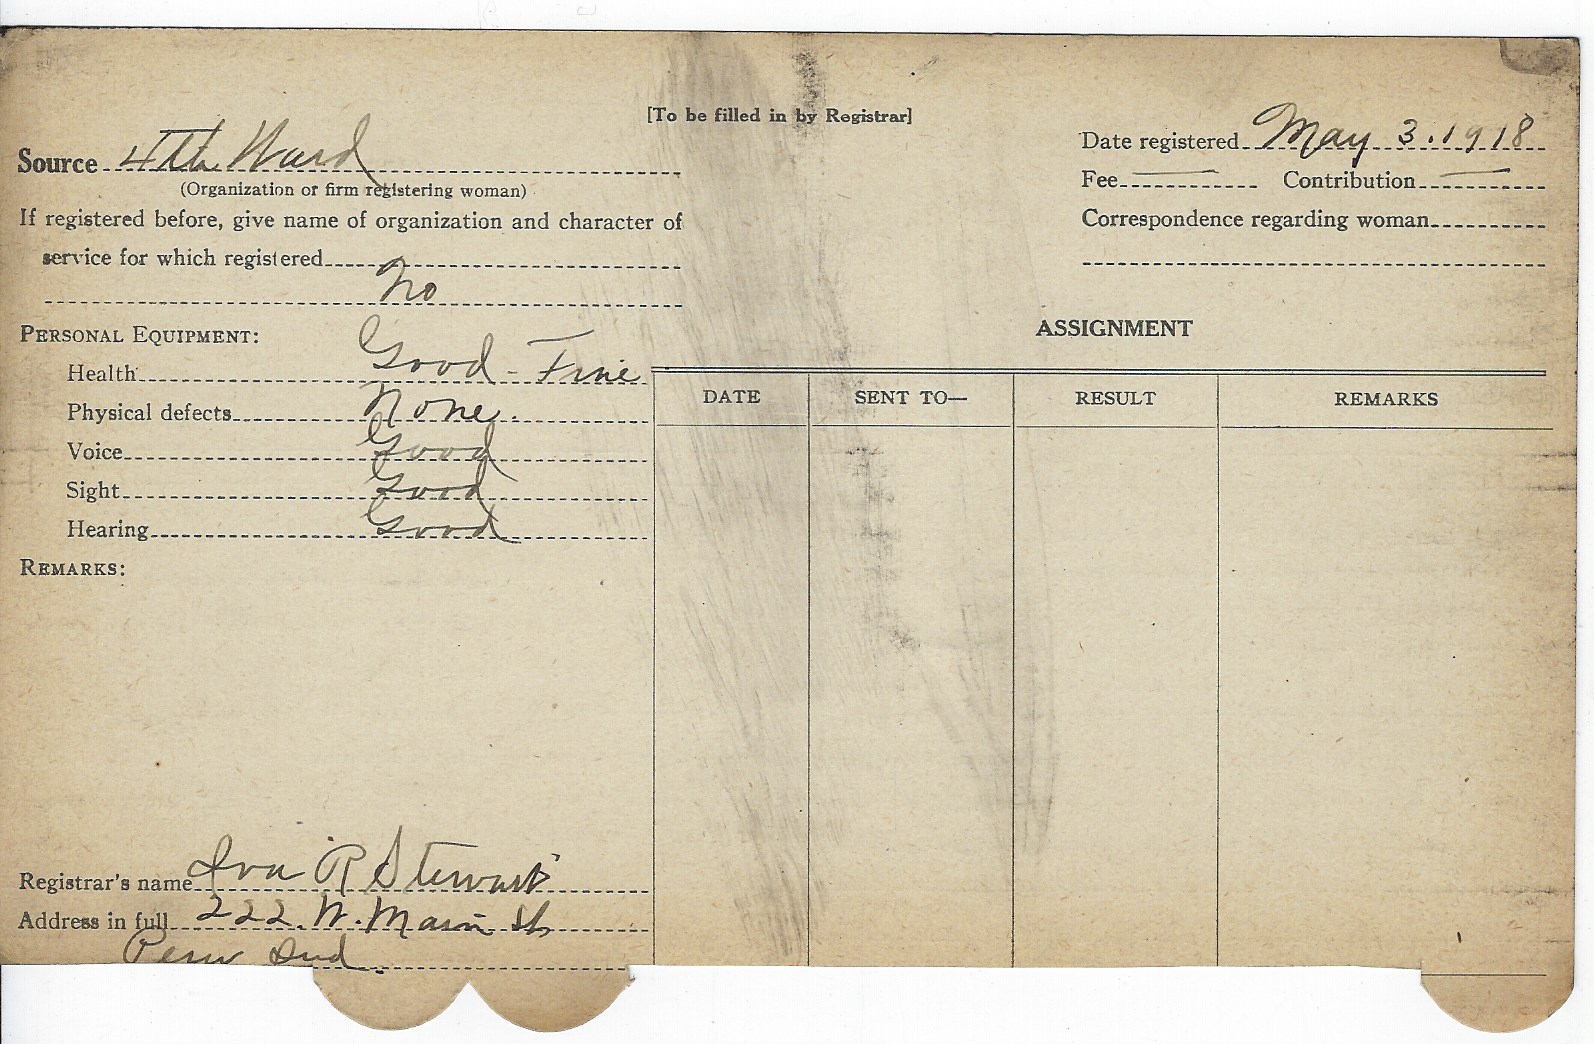 [To be filled in by Registrar]
Source 4th Ward
(Organization or firm registering woman)
If registered before, give name of organization and character of
service for which registered
No
PERSONAL EQUIPMENT:
Health Good - Fine
Physical defects None.
Voice Good
Sight Good
Hearing Good
REMARKS:
Registrar's name Iva R Stewart
Address in full 222. W. Main St
Peru Ind.
Date registered May 3. 1918
Fee — Contribution —
Correspondence regarding woman
ASSIGNMENT
DATE SENT TO— RESULT REMARKS